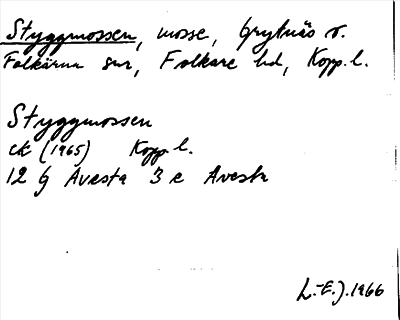 Styggmossen, mosse, Grytnäs s.
Folkärna snr, Folkare hd, Kopp. l.
Styggmossen
ek (1965) Kopp. l.
12 G Avesta 3 e Avesta
L.-E. J. 1966